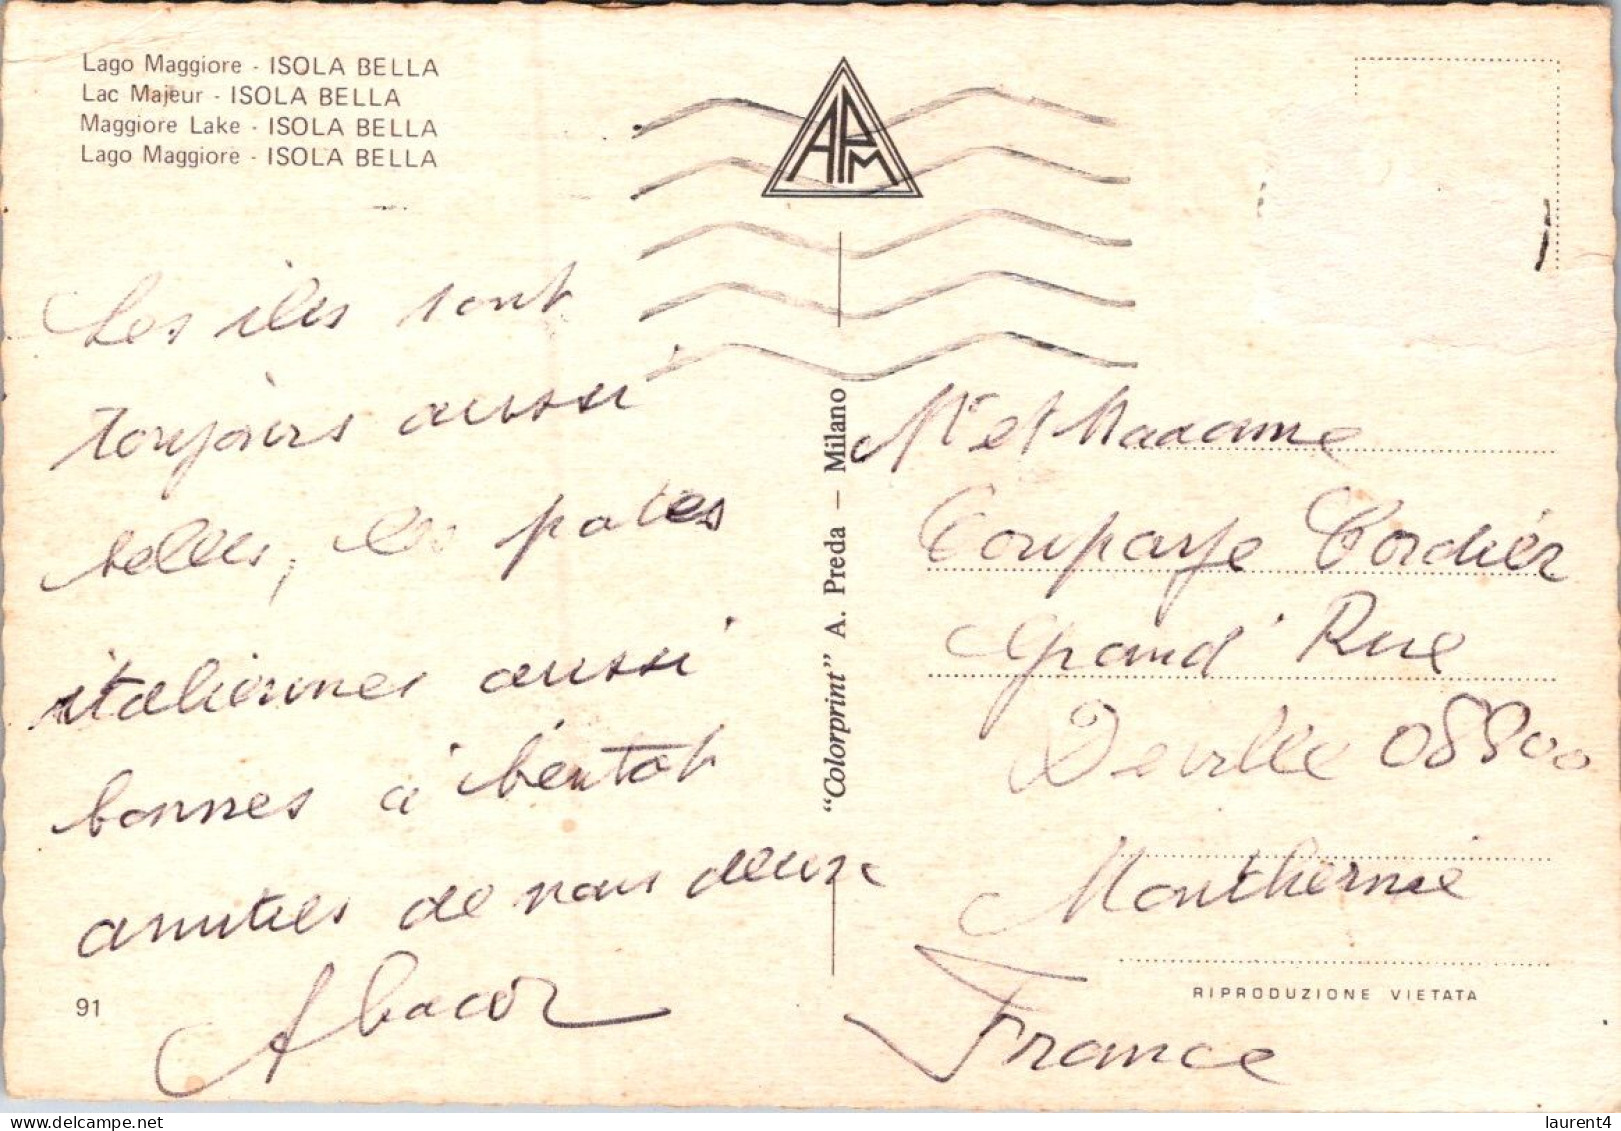 Lago Maggiore - ISOLA BELLA
Lac Majeur - ISOLA BELLA
Maggiore Lake - ISOLA BELLA
Lago Maggiore - ISOLA BELLA
APM
Les iles sont
toujours aussi
belles, les pates
italiennes aussi
bonnes à bientot
amities de nous deux
"Colorprint" A. Preda - Milano
Mr et Madame
Coupaye Cordier
Grand' Rue
Deville 08800
Montherme
France
RIPRODUZIONE VIETATA
91
delcampe.net
laurent4